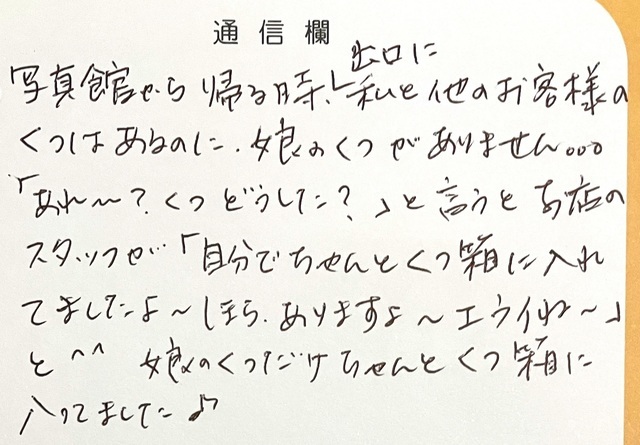 通信欄
出口に
写真館から帰る時、私と他のお客様の
くつはあるのに、娘のくつがありません。。。
「あれ〜?くつどうした?」と言うとお店の
スタッフが「自分でちゃんとくつ箱に入れ
てましたよ〜ほら、ありますよ〜エライね〜」
と^^ 娘のくつだけちゃんとくつ箱に
入ってました♪